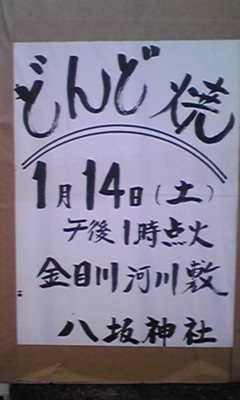 どんど焼
1月14日(土)
午後1時点火
金目川河川敷
八坂神社